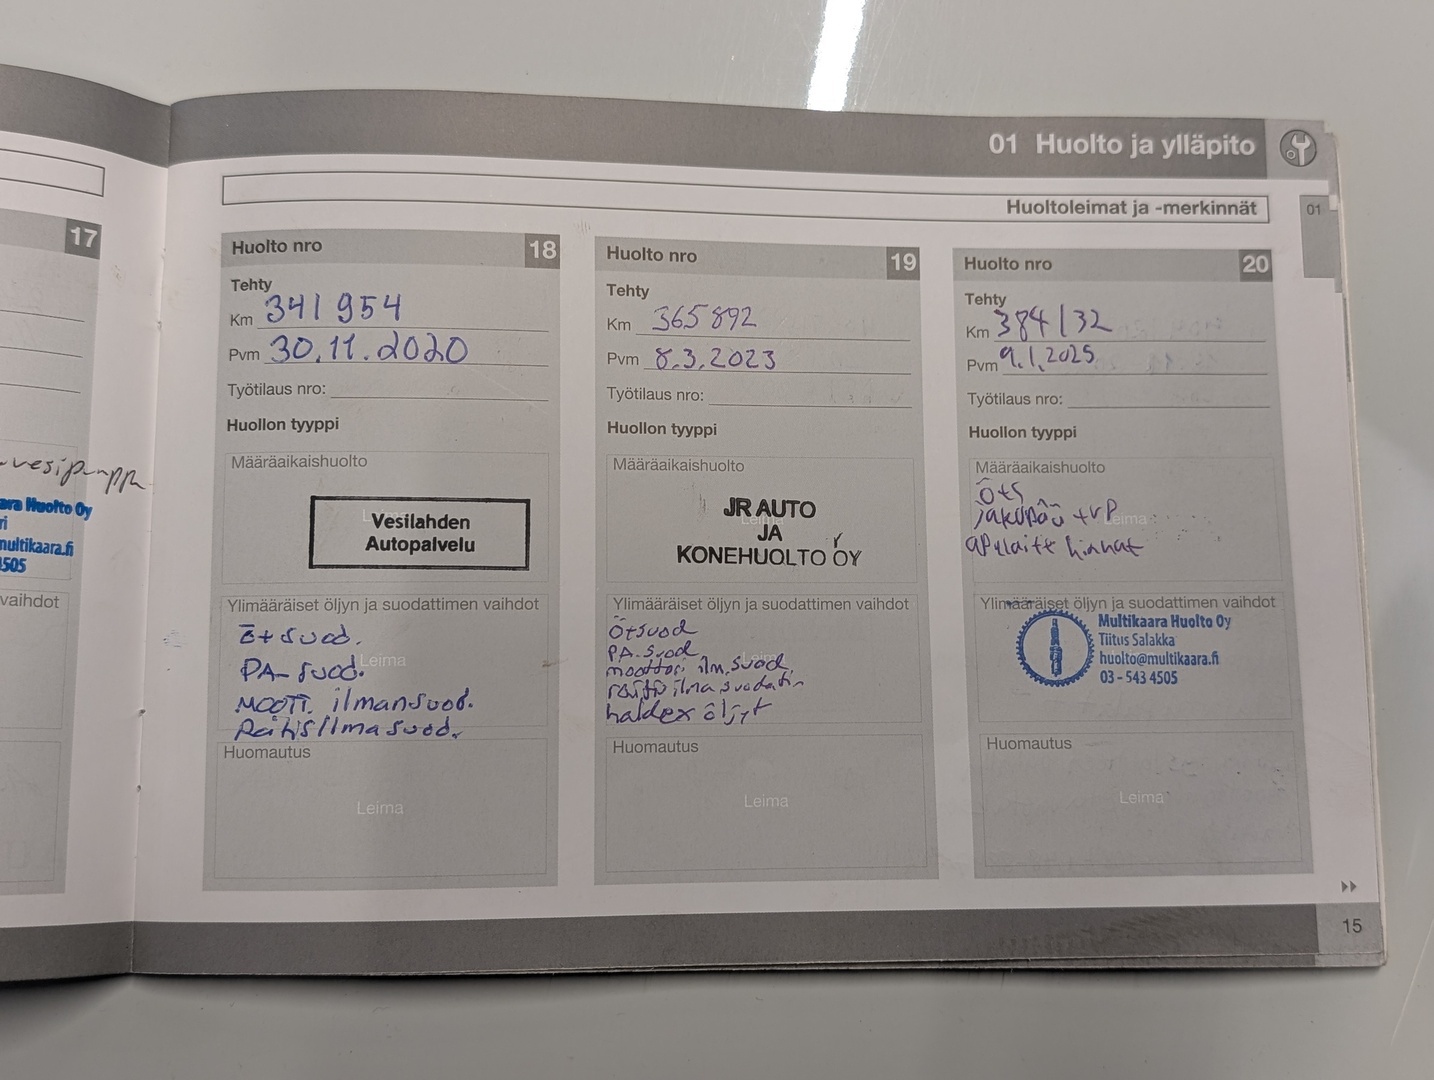 01 Huolto ja ylläpito
Huoltoleimat ja -merkinnät
01
17
vesipumppu
ara Huolto Oy
ri
multikaara.fi
4505
vaihdot
Huolto nro 18
Tehty
Km 341 954
Pvm 30.11.2020
Työtilaus nro:
Huollon tyyppi
Määräaikaishuolto
Vesilahden
Autopalvelu
Ylimääräiset öljyn ja suodattimen vaihdot
Ö+suod.
Leima
PA-suod.
MOOTT. ilmansuod.
Raitisilmasuod.
Huomautus
Leima
Huolto nro 19
Tehty
Km 365 892
Pvm 8.3.2023
Työtilaus nro:
Huollon tyyppi
Määräaikaishuolto
Leima
JR AUTO
JA
KONEHUOLTO OY
Ylimääräiset öljyn ja suodattimen vaihdot
Ö+suod
PA.suod
Leima
moottori ilm.suod.
raitis ilmasuodatin
haldex öljyt
Huomautus
Leima
Huolto nro 20
Tehty
Km 384132
Pvm 9.1.2025
Työtilaus nro:
Huollon tyyppi
Määräaikaishuolto
Ö+S
jakopää +VP
Leima
apulaite hihnat
Ylimääräiset öljyn ja suodattimen vaihdot
Multikaara Huolto Oy
Tiitus Salakka
huolto@multikaara.fi
03 - 543 4505
Huomautus
Leima
15